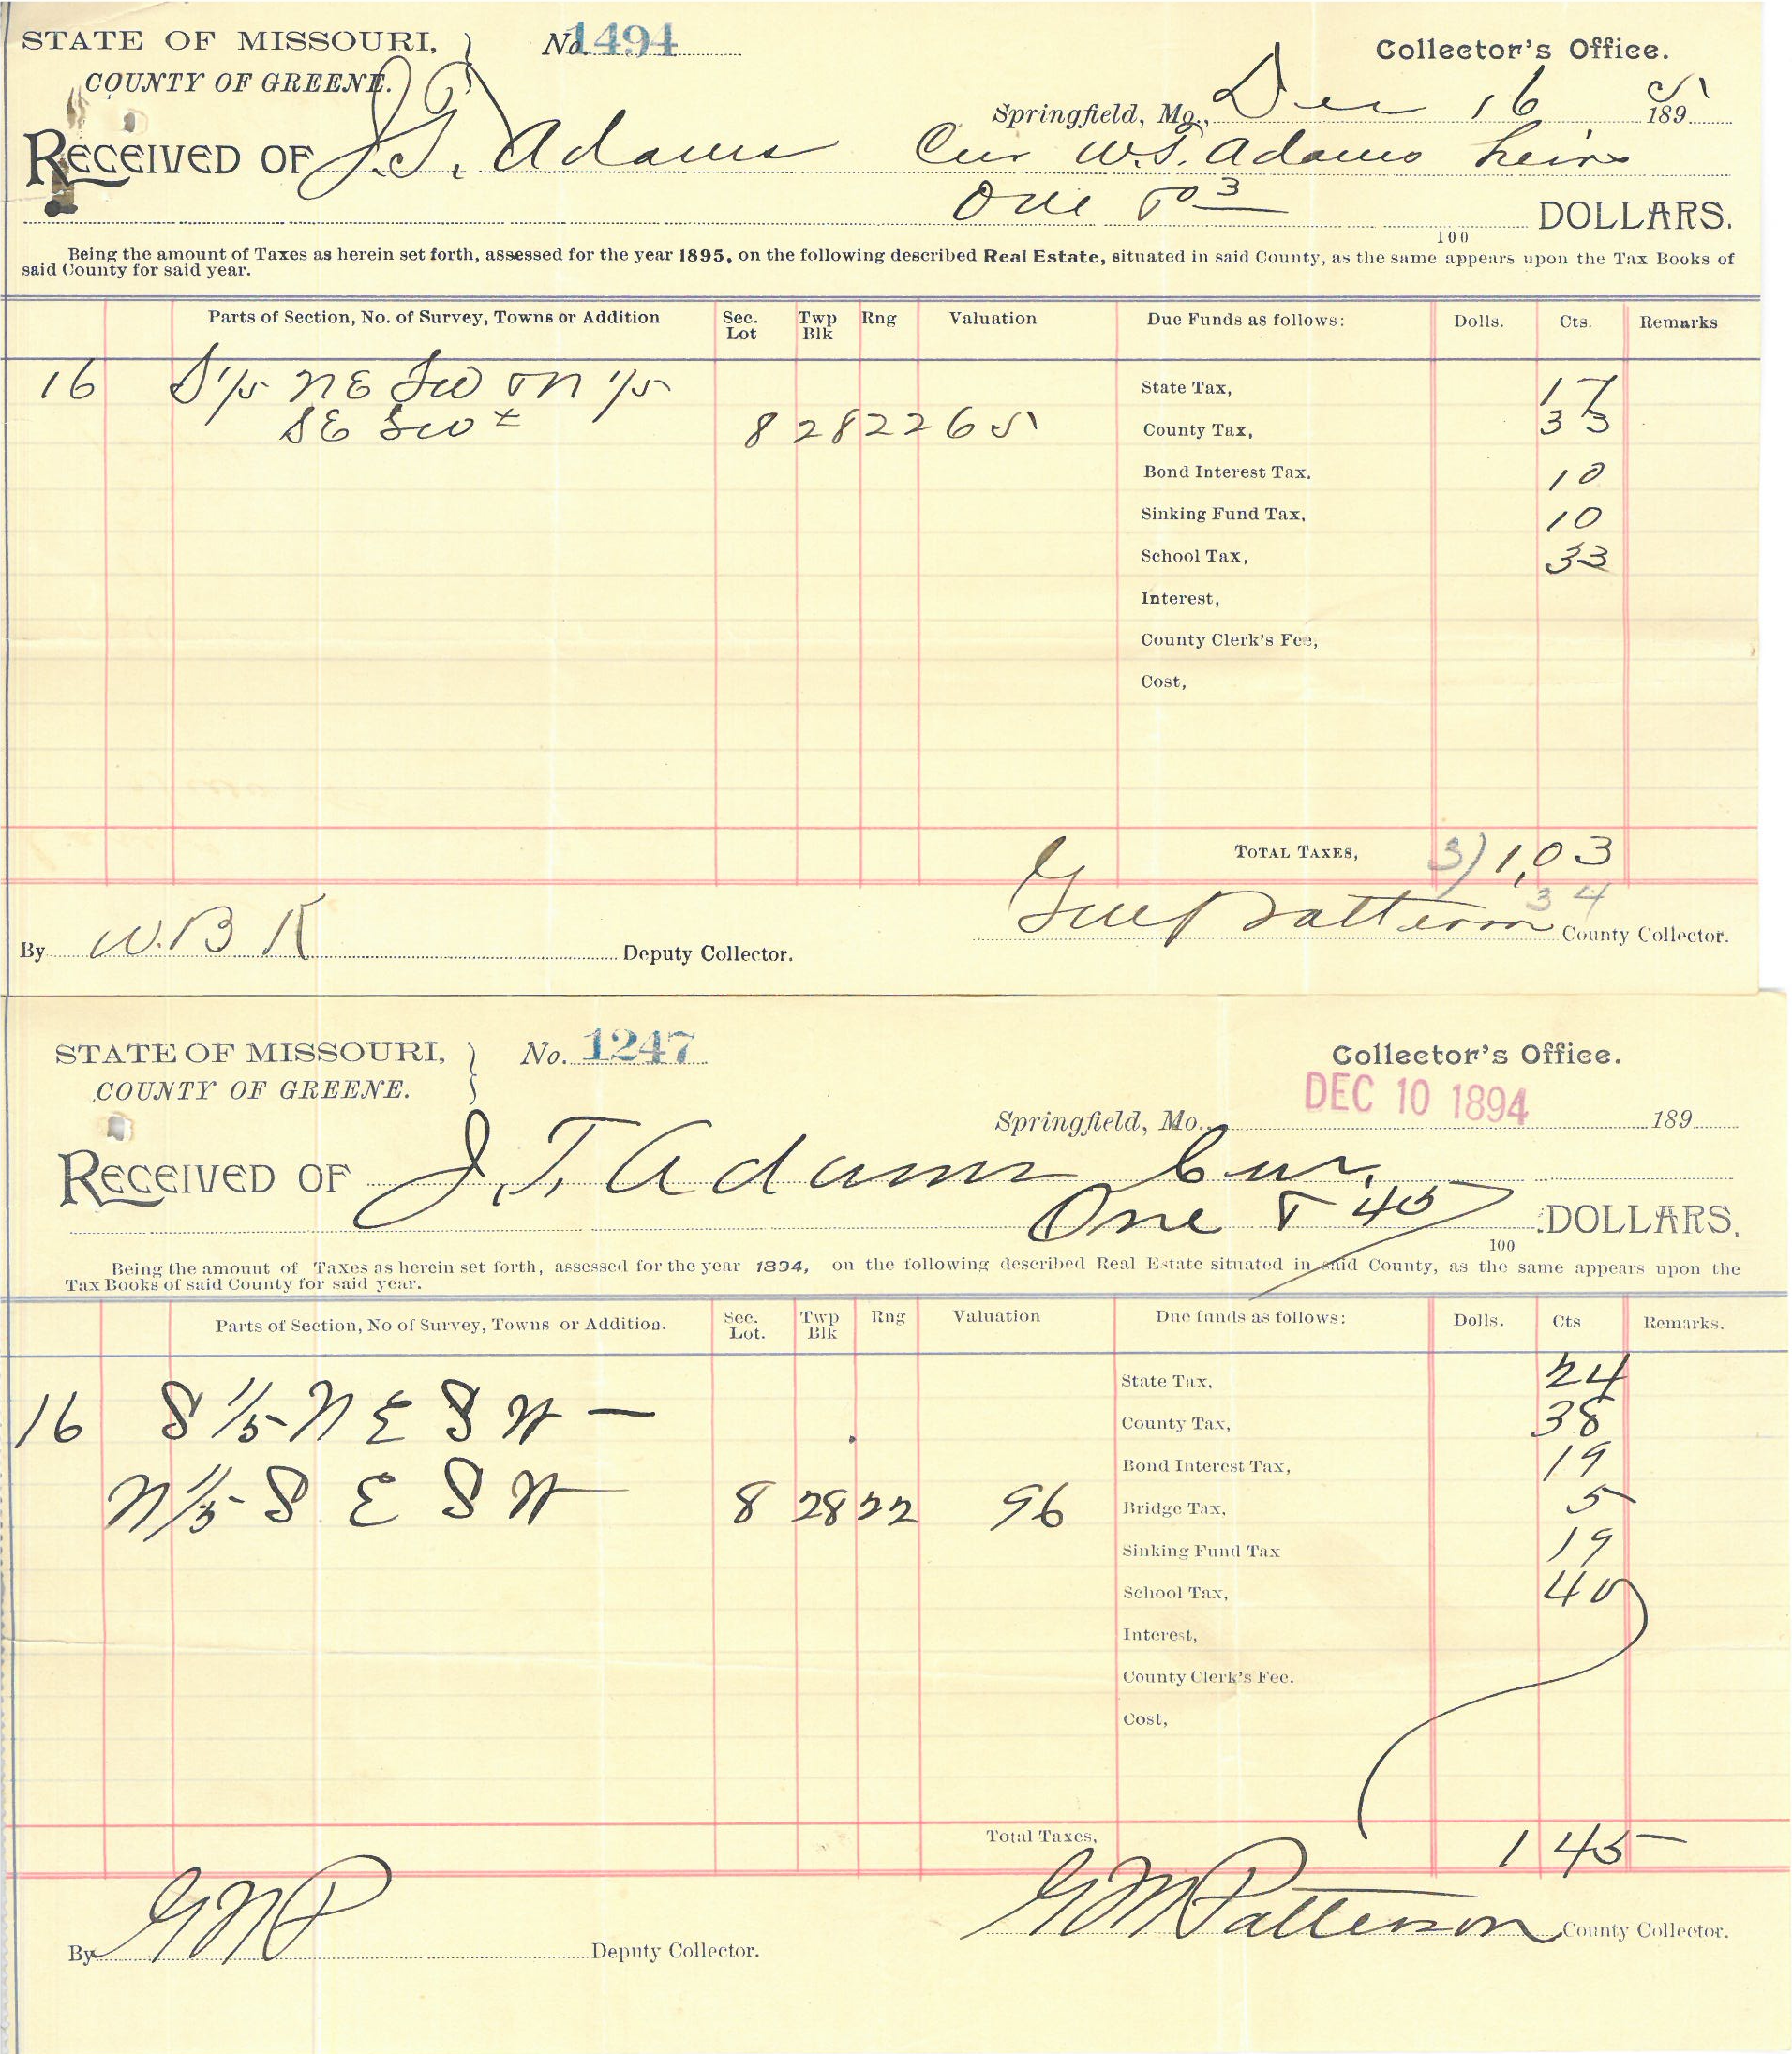 STATE OF MISSOURI, No. 1494 Collector's Office.
COUNTY OF GREENE.
Springfield, Mo., Dec 16 1895
RECEIVED OF J.T. Adams Cur W.T. Adams heirs
One & 03 DOLLARS.
100
Being the amount of Taxes as herein set forth, assessed for the year 1895, on the following described Real Estate, situated in said County, as the same appears upon the Tax Books of
said County for said year.
Parts of Section, No. of Survey, Towns or Addition Sec. Lot Twp Blk Rng Valuation Due Funds as follows: Dolls. Cts. Remarks
16 S 1/5 NE SW & N 1/5 State Tax, 17
SE SW 8 28 22 65 County Tax, 33
Bond Interest Tax. 10
Sinking Fund Tax, 10
School Tax, 33
Interest,
County Clerk's Fee,
Cost,
TOTAL TAXES, 3) 1,03
34
By W.B K Deputy Collector. Patterson County Collector.
STATE OF MISSOURI, No. 1247 Collector's Office.
COUNTY OF GREENE. DEC 10 1894
Springfield, Mo. 189
RECEIVED OF J.T. Adams Cur.
One & 45 DOLLARS.
100
Being the amount of Taxes as herein set forth, assessed for the year 1894, on the following described Real Estate situated in said County, as the same appears upon the
Tax Books of said County for said year.
Parts of Section, No of Survey, Towns or Addition. Sec. Lot. Twp Blk Rng Valuation Due funds as follows: Dolls. Cts Remarks.
State Tax, 24
16 S 1/5 N E S W — County Tax, 38
Bond Interest Tax, 19
N 1/5 S E S W 8 28 22 96 Bridge Tax, 5
Sinking Fund Tax 19
School Tax, 40
Interest,
County Clerk's Fee.
Cost,
Total Taxes, 1 45
By GMP Deputy Collector. GM Patterson County Collector.